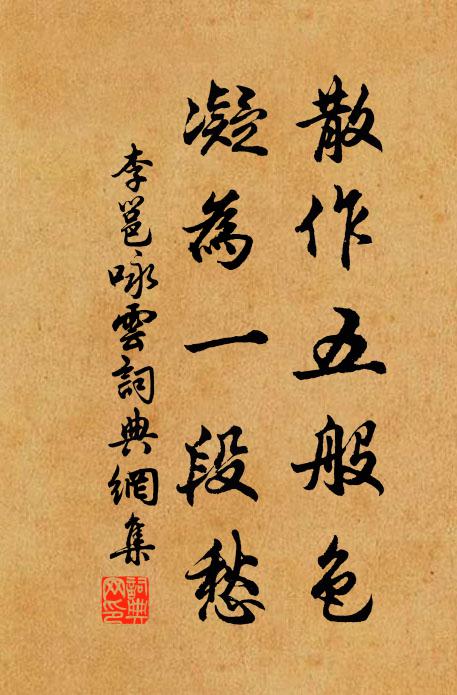 散作五般色
凝為一段愁
李邕咏雲詞典網集
詞典
網印